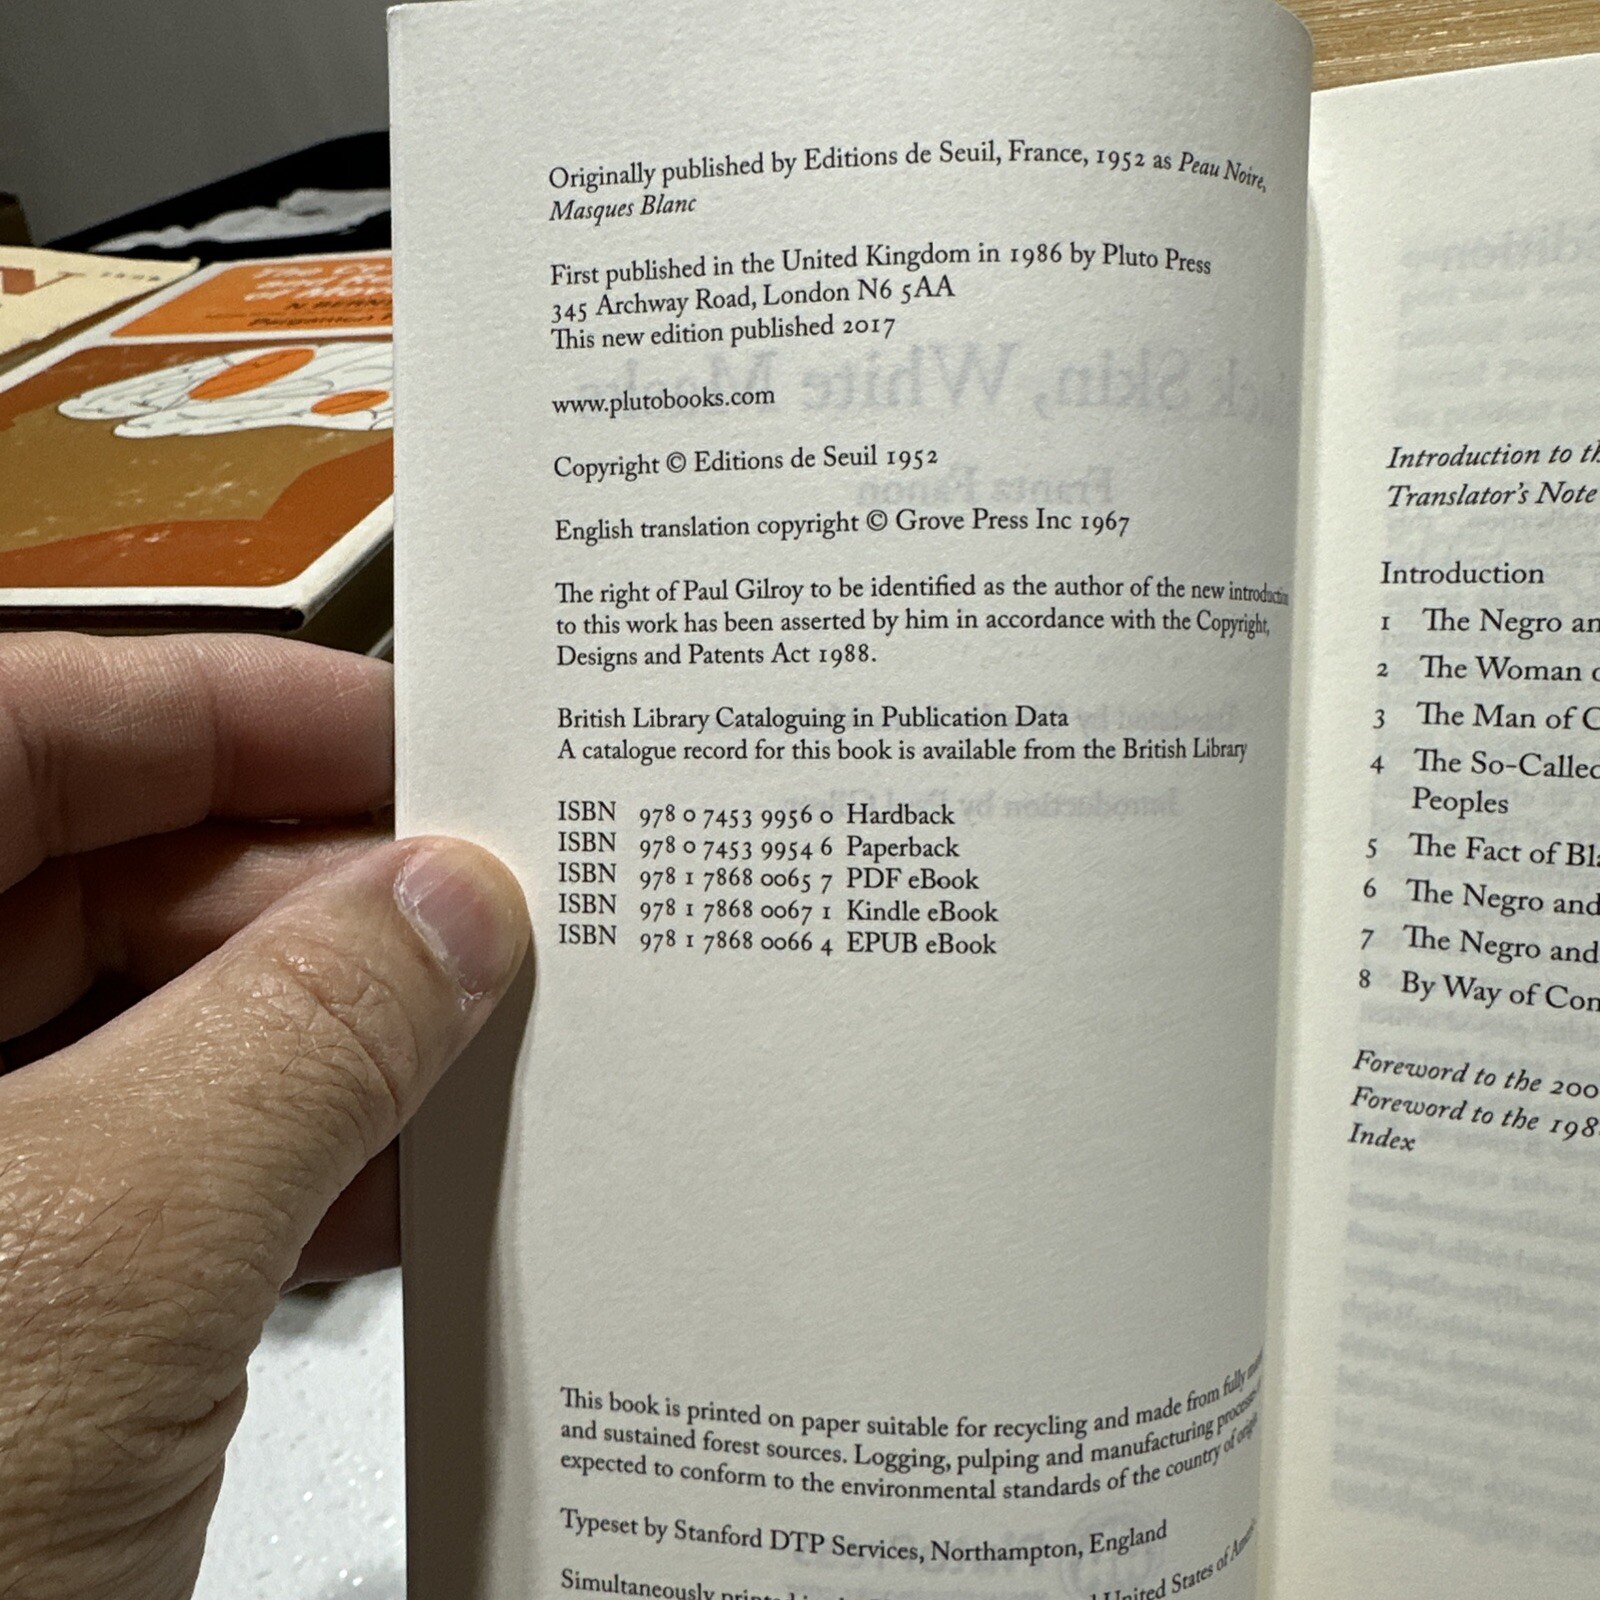 Originally published by Editions de Seuil, France, 1952 as Peau Noire,
Masques Blanc
First published in the United Kingdom in 1986 by Pluto Press
345 Archway Road, London N6 5AA
This new edition published 2017
www.plutobooks.com
Copyright © Editions de Seuil 1952
English translation copyright © Grove Press Inc 1967
The right of Paul Gilroy to be identified as the author of the new introduction
to this work has been asserted by him in accordance with the Copyright,
Designs and Patents Act 1988.
British Library Cataloguing in Publication Data
A catalogue record for this book is available from the British Library
ISBN 978 0 7453 9956 0 Hardback
ISBN 978 0 7453 9954 6 Paperback
ISBN 978 1 7868 0065 7 PDF eBook
ISBN 978 1 7868 0067 1 Kindle eBook
ISBN 978 1 7868 0066 4 EPUB eBook
This book is printed on paper suitable for recycling and made from fully
and sustained forest sources. Logging, pulping and manufacturing processes
expected to conform to the environmental standards of the country of origin
Typeset by Stanford DTP Services, Northampton, England
Simultaneously
United States of
Introduction to
Translator's Note
Introduction
1 The Negro
2 The Woman
3 The Man of
4 The So-Called
Peoples
5 The Fact of
6 The Negro and
7 The Negro and
8 By Way of
Foreword to the
Foreword to the
Index